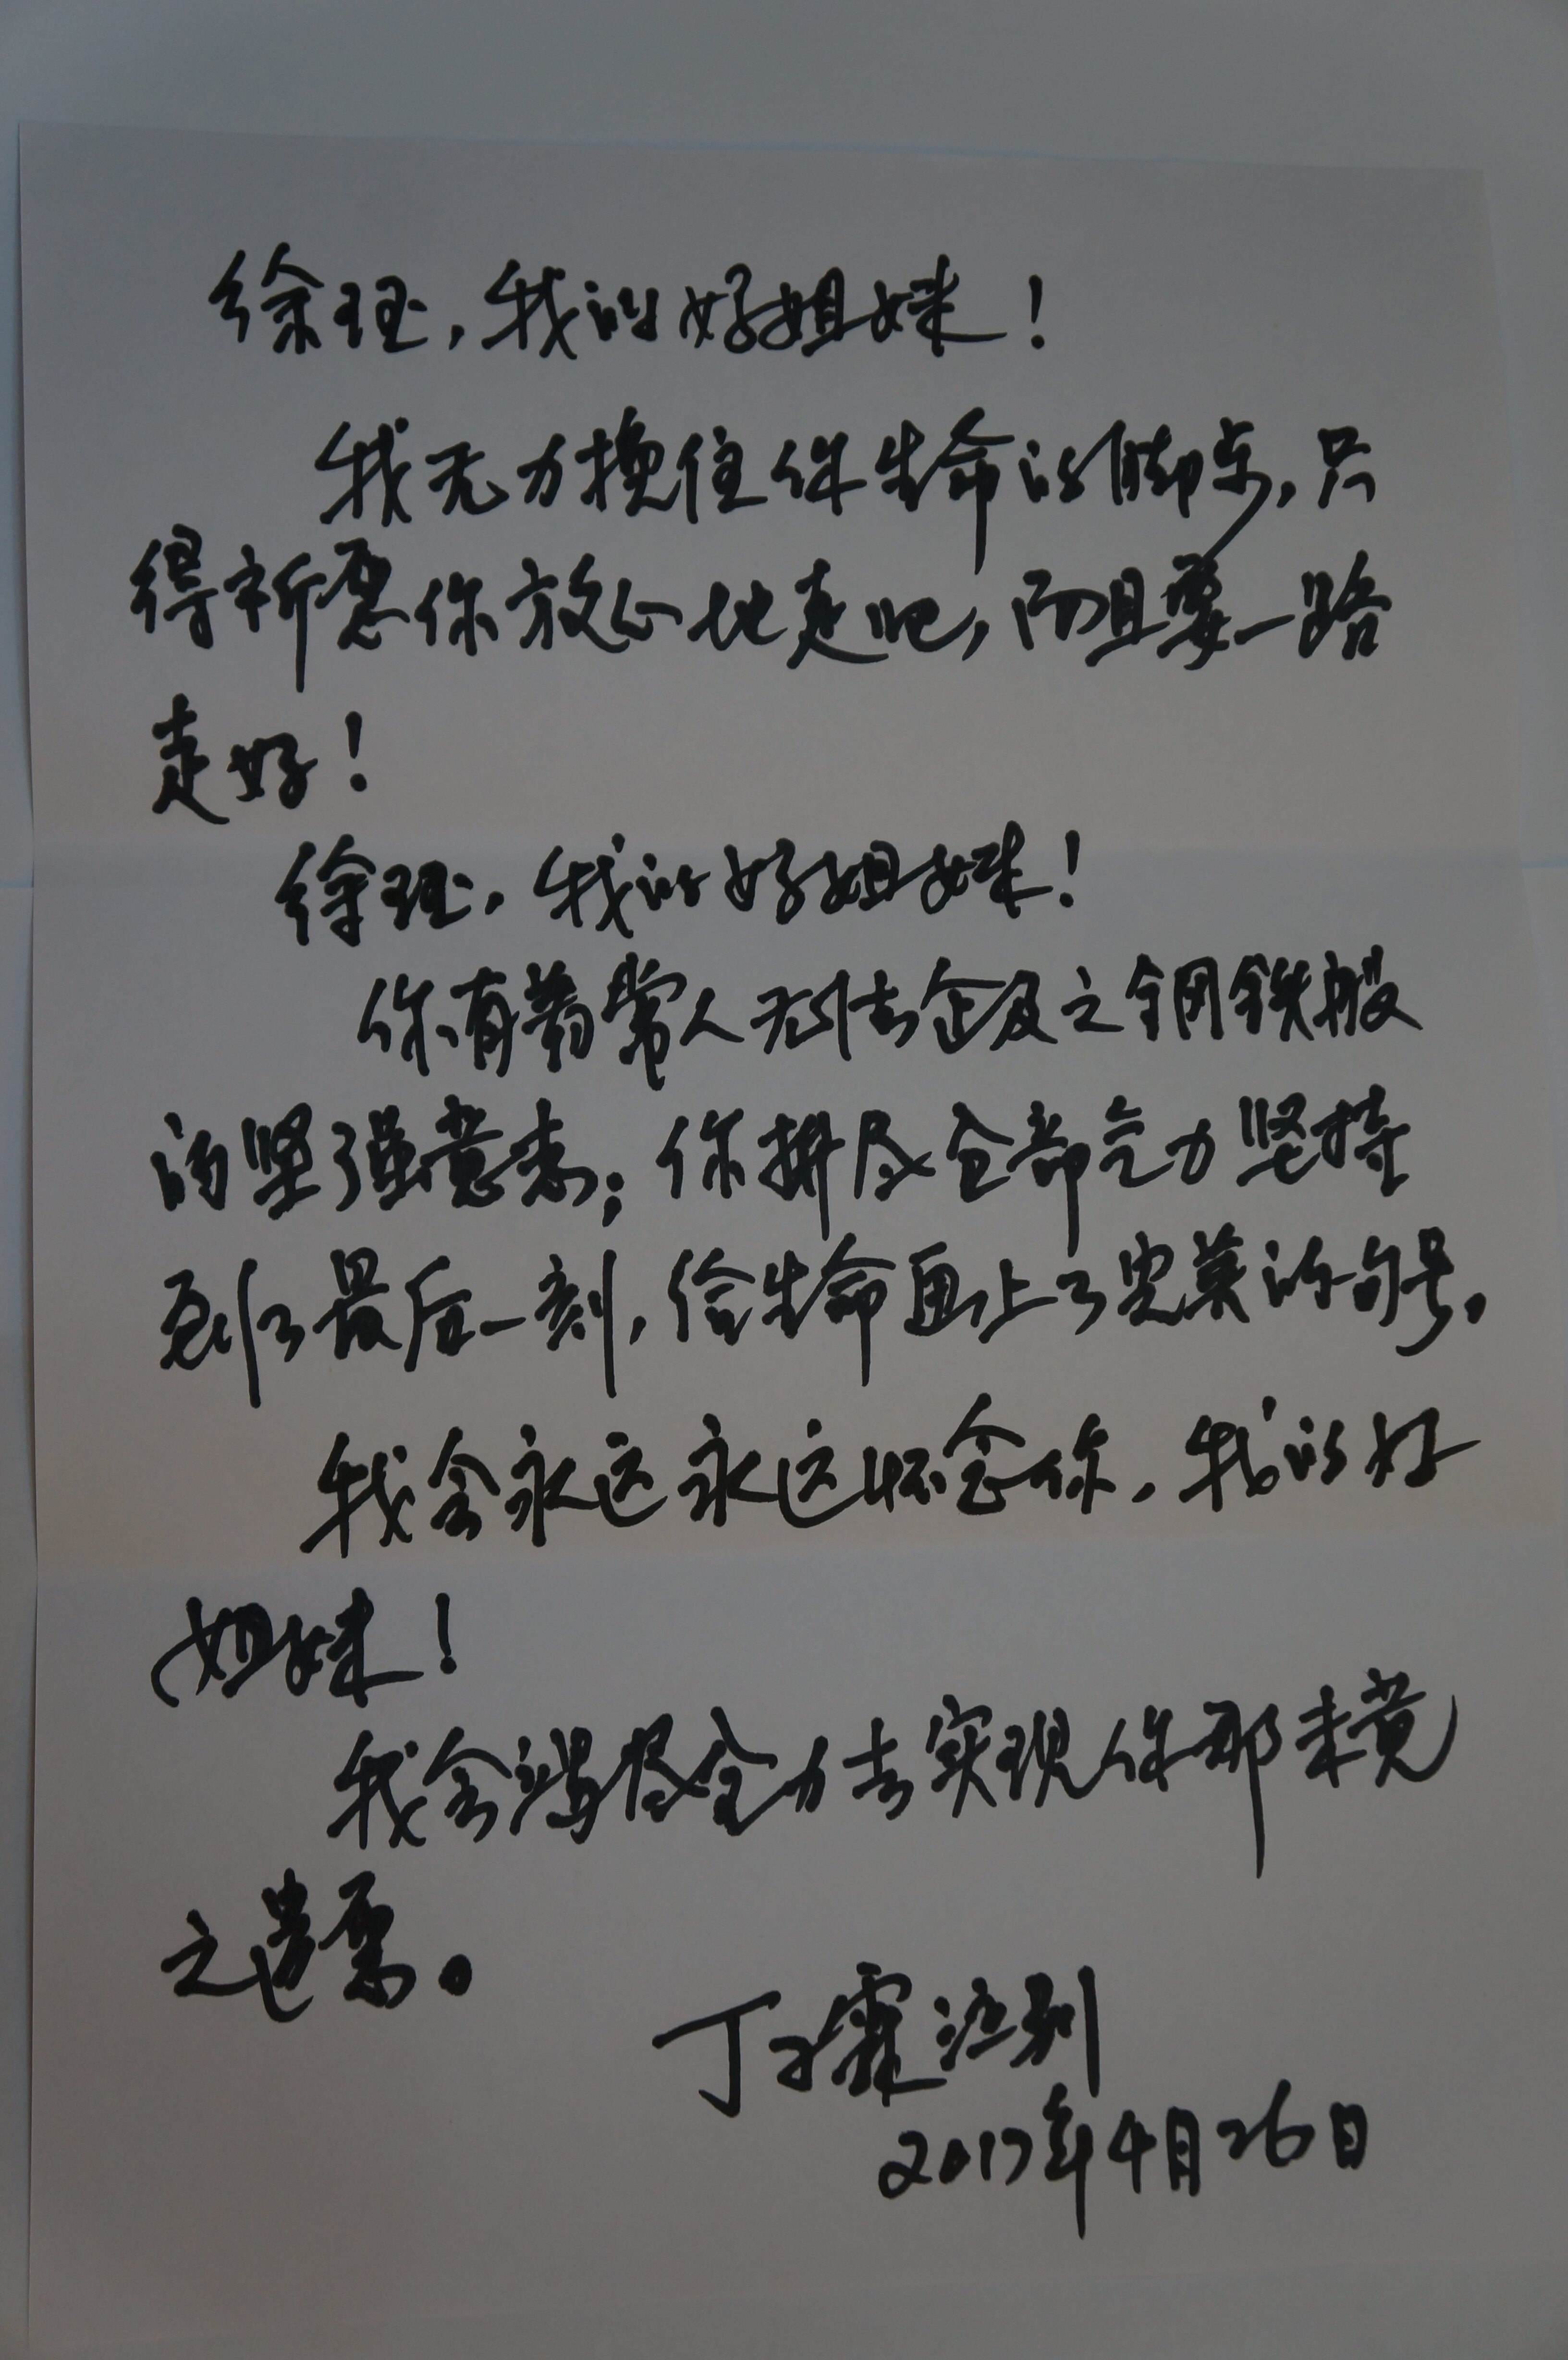 徐珏，我的好姐妹！
我无力挽住你生命的脚步，只
得祈愿你放心地走吧，而且要一路
走好！
徐珏，我的好姐妹！
你有着常人无法企及之钢铁般
的坚强意志；你拼尽全部气力坚持
到了最后一刻，给生命画上了完美的句号，
我会永远永远怀念你，我的好
姐妹！
我会竭尽全力去实现你那未竟
之遗愿。
丁子霖泣别
2017年4月26日